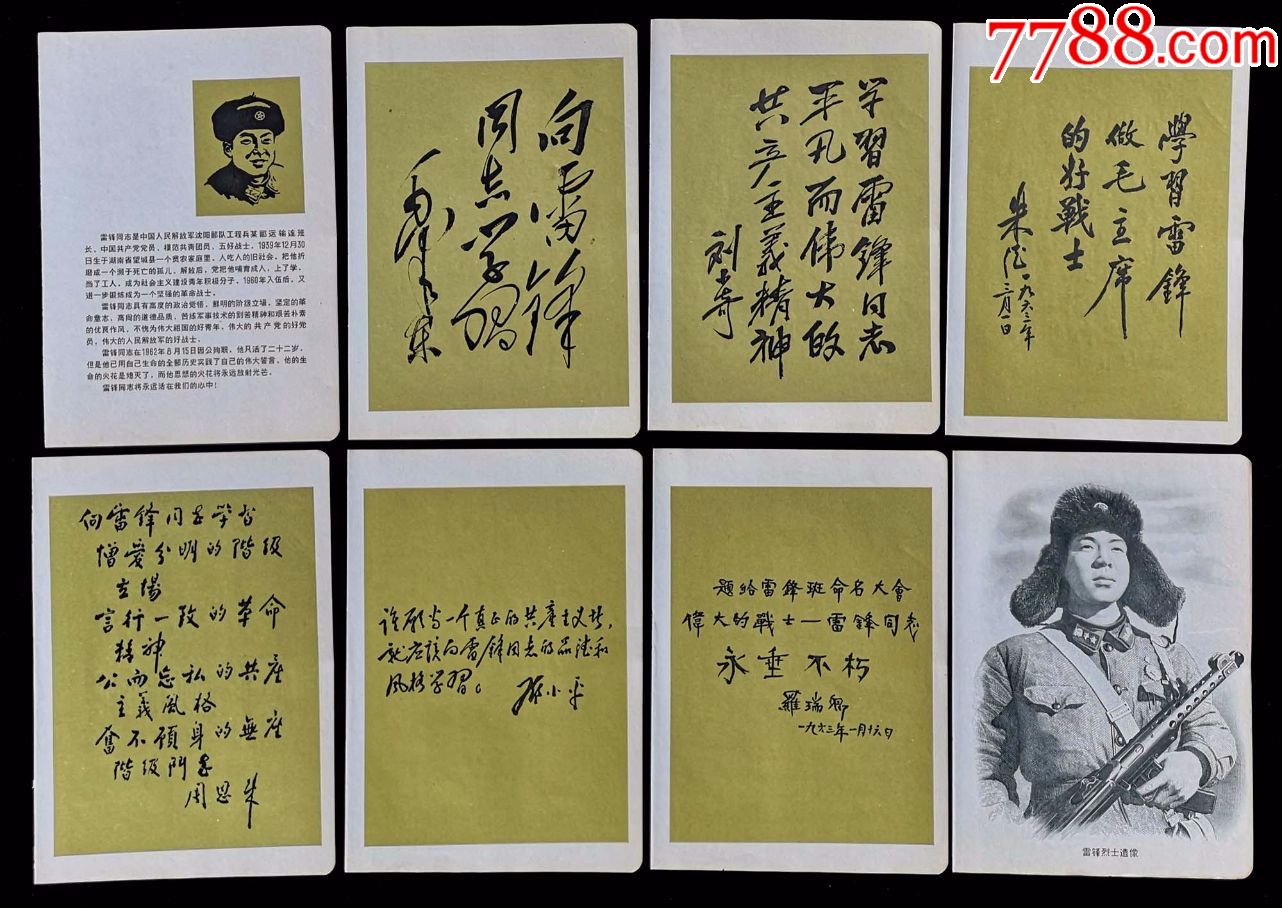 7788.com
雷锋同志是中国人民解放军沈阳部队工程兵某部运输连班
长，中国共产党党员，模范共青团员，五好战士，1939年12月30
日生于湖南省望城县一个贫农家庭里，人吃人的旧社会，把他折
磨成一个濒于死亡的孤儿，解放后，党把他哺育成人，上了学，
当了工人，成为社会主义建设青年积极分子，1960年入伍后，又
进一步锻炼成为一个坚强的革命战士。
雷锋同志具有高度的政治觉悟，鲜明的阶级立場，坚定的革
命意志，高尚的道德品质，苦练军事技术的刻苦精神和艰苦朴素
的优良作风，不愧为伟大祖国的好青年，伟大的共产党的好党
员，伟大的人民解放军的好战士。
雷锋同志在1962年8月15日因公殉职，他只活了二十二岁，
但是他已用自己生命的全部历史实践了自己的伟大誓言，他的生
命的火花是熄灭了，而他思想的火花将永远放射光芒。
雷锋同志将永远活在我们的心中！
向雷锋
同志学习
毛泽东
学習雷鋒同志
平凡而偉大的
共产主義精神
刘少奇
學習雷鋒
做毛主席
的好戰士
朱德
一九六三年
三月一日
向雷锋同志学習
憎爱分明的階级
立場
言行一致的革命
精神
公而忘私的共産
主義風格
奮不顧身的無産
階级鬥志
周恩来
谁願当一个真正的共產主义者，
就应该向雷鋒同志的品德和
风格学習。
邓小平
題给雷鋒班命名大會
偉大的戰士—雷鋒同志
永垂不朽
羅瑞卿
一九六三年一月十六日
雷锋烈士遗像